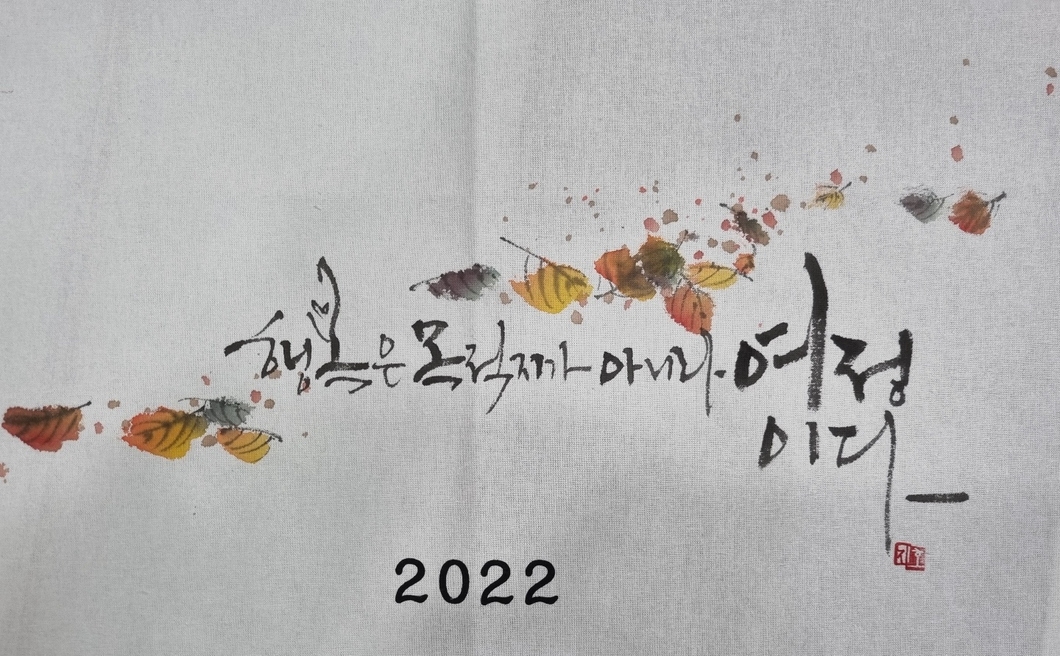 행복은 목적지가 아니라 여정
이다
2022